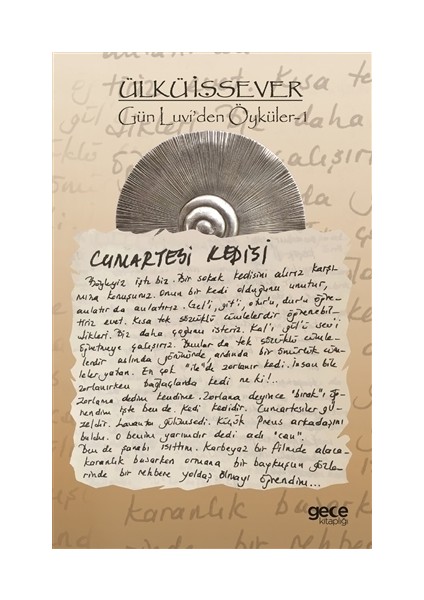 ÜLKÜİSSEVER
Gün Luvi'den Öyküler-1
CUMARTESİ KEDİSİ
Böyleyiz işte biz. Bir sokak kedisini alırız karşı-
mıza konuşuruz. Onun bir kedi olduğunu unutur,
anlatır da anlatırız. Gel'i, git'i, otur'u, dur'u öğre-
tiriz evet. Kısa tek sözcüklü cümlelerdir öğrenebil-
dikleri. Biz daha çoğunu isteriz. Kal'ı gül'ü sev'i
öğretmeye çalışırız. Bunlar da tek sözcüklü cümle-
lerdir aslında görünürde, ardında bir ömürlük cüm-
leler yatan. En çok "ile"de zorlanır kedi. İnsan bile
zorlanırken bağlaçlarda kedi ne ki!..
Zorlama dedim kendime. Zorlama deyince "bırak"ı öğ-
rendim işte ben de. Kedi kedidir. Cumartesiler gü-
zeldir. Lavanta gülümsedi. Küçük Prens arkadaşını
buldu. O benim yarımdır dedi adı "can".
Ben de şarabı ısıttım. Karbeyaz bir filmde alaca-
karanlık basarken ormana bir baykuşun gözle-
rinde bir rehbere yoldaş olmayı öğrendim...
gece
kitaplığı